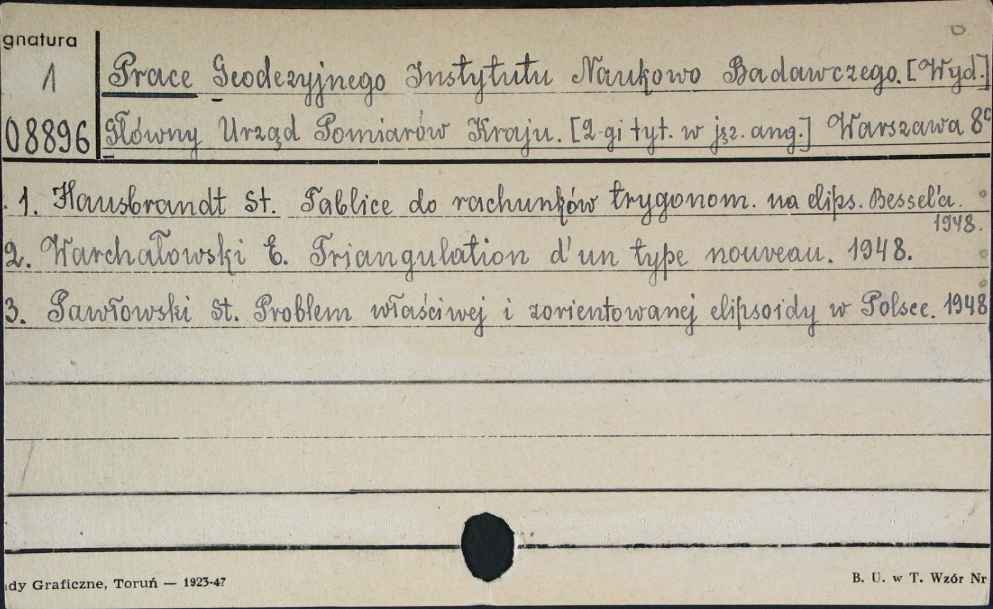 gnatura
1
08896
Prace Geodezyjnego Instytutu Naukowo Badawczego. [Wyd.]
Główny Urząd Pomiarów Kraju. [2-gi tyt. w jęz. ang.] Warszawa 8°
1. Hausbrandt St. Tablice do rachunków trygonom. na elips. Bessel'a.
1948.
2. Warchałowski E. Triangulation d'un type nouveau. 1948.
3. Pawłowski St. Problem właściwej i zorientowanej elipsoidy w Polsce. 1948
dy Graficzne, Toruń — 1923-47
B. U. w T. Wzór Nr